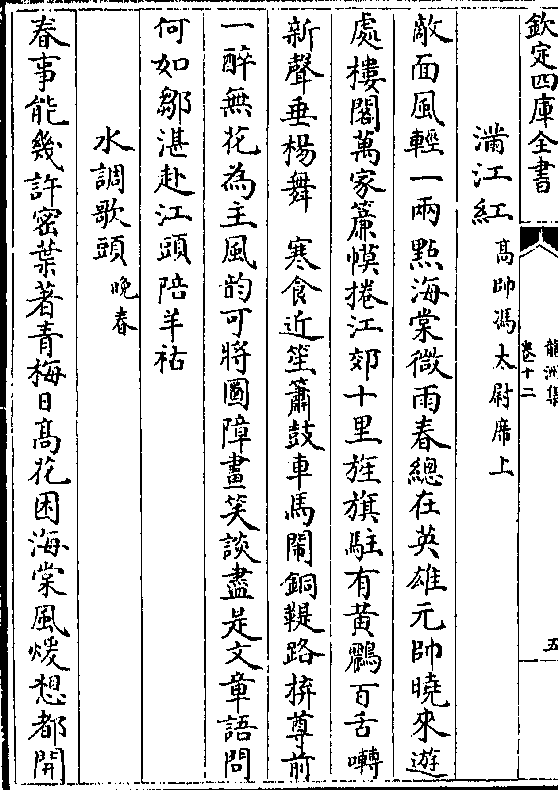 欽定四庫全書
龍洲集
卷十二
五
滿江紅 高帥馮太尉席上
敵面風輕一兩點海棠微雨春總在英雄元帥曉來遊
處樓閣萬家簾幙捲江郊十里旌旗駐有黃鸝百舌囀
新聲垂楊舞 寒食近笙簫鼓車馬鬧銅鞮路拚尊前
一醉無花為主風韵可將圖障畫笑談盡是文章語問
何如鄒湛赴江頭陪羊祜
水調歌頭 晚春
春事能幾許密葉著青梅日髙花困海棠風煖想都開